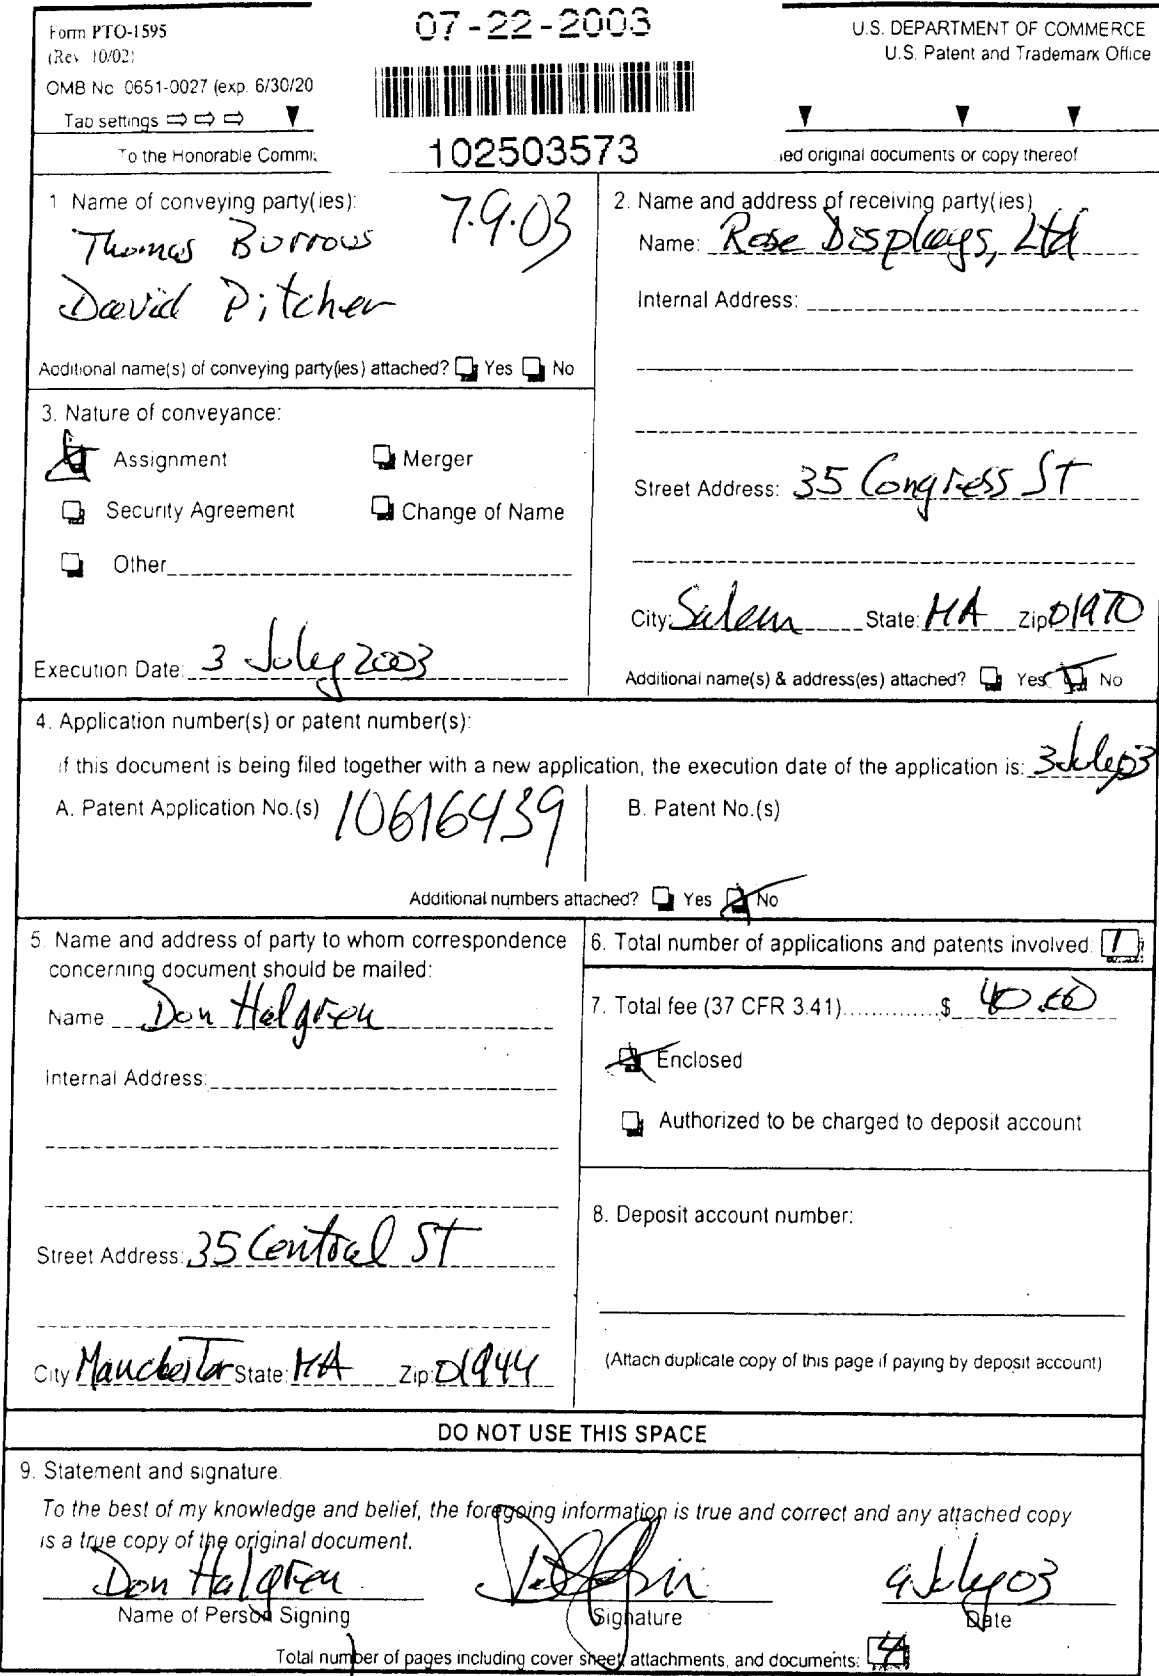 Form PTO-1595
(Rev. 10/02)
OMB No. 0651-0027 (exp. 6/30/20
Tab settings ⇨ ⇨ ⇨ ▼
07-22-2003
102503573
U.S. DEPARTMENT OF COMMERCE
U.S. Patent and Trademark Office
▼ ▼ ▼
To the Honorable Commi
ied original documents or copy thereof
1 Name of conveying party(ies):
7.9.03
Thomas Burrows
David Pitcher
Additional name(s) of conveying party(ies) attached? Yes No
2. Name and address of receiving party(ies)
Name: Rose Displays, Ltd
Internal Address:
Street Address: 35 Congress St
City: Salem State: MA Zip: 01970
Additional name(s) & address(es) attached? Yes No
3. Nature of conveyance:
Assignment Merger
Security Agreement Change of Name
Other
Execution Date: 3 July 2003
4. Application number(s) or patent number(s):
If this document is being filed together with a new application, the execution date of the application is: 3 July 03
A. Patent Application No.(s) 10616439
B. Patent No.(s)
Additional numbers attached? Yes No
5. Name and address of party to whom correspondence
concerning document should be mailed:
Name Don Halgren
Internal Address:
Street Address: 35 Central St
City Manchester State: MA Zip: 01944
6. Total number of applications and patents involved: 1
7. Total fee (37 CFR 3.41)..............$ 40.00
Enclosed
Authorized to be charged to deposit account
8. Deposit account number:
(Attach duplicate copy of this page if paying by deposit account)
DO NOT USE THIS SPACE
9. Statement and signature.
To the best of my knowledge and belief, the foregoing information is true and correct and any attached copy
is a true copy of the original document.
Don Halgren 9 July 03
Name of Person Signing Signature Date
Total number of pages including cover sheet, attachments, and documents: 4